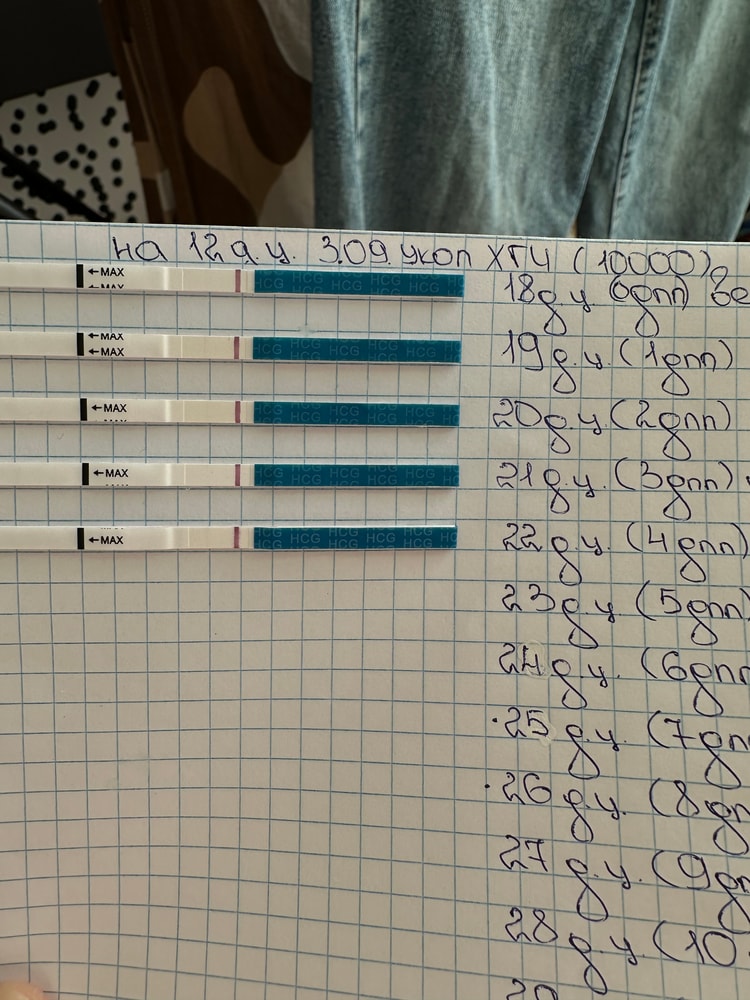 на 12 д.ц. 3.09. укол ХГЧ (10000)
←MAX HCG HCG HCG HCG 18 д.ц. (0дпп) ве
←MAX
←MAX HCG HCG HCG 19 д.ц. (1дпп)
←MAX HCG HCG HCG 20 д.ц. (2дпп)
←MAX HCG HCG HCG 21 д.ц. (3дпп)
←MAX HCG HCG HCG HC 22 д.ц. (4дпп)
23 д.ц. (5дпп)
24 д.ц. (6дпп
·25 д.ц. (7дп
·26 д.ц. (8дп
27 д.ц. (9дп
28 д.ц. (10